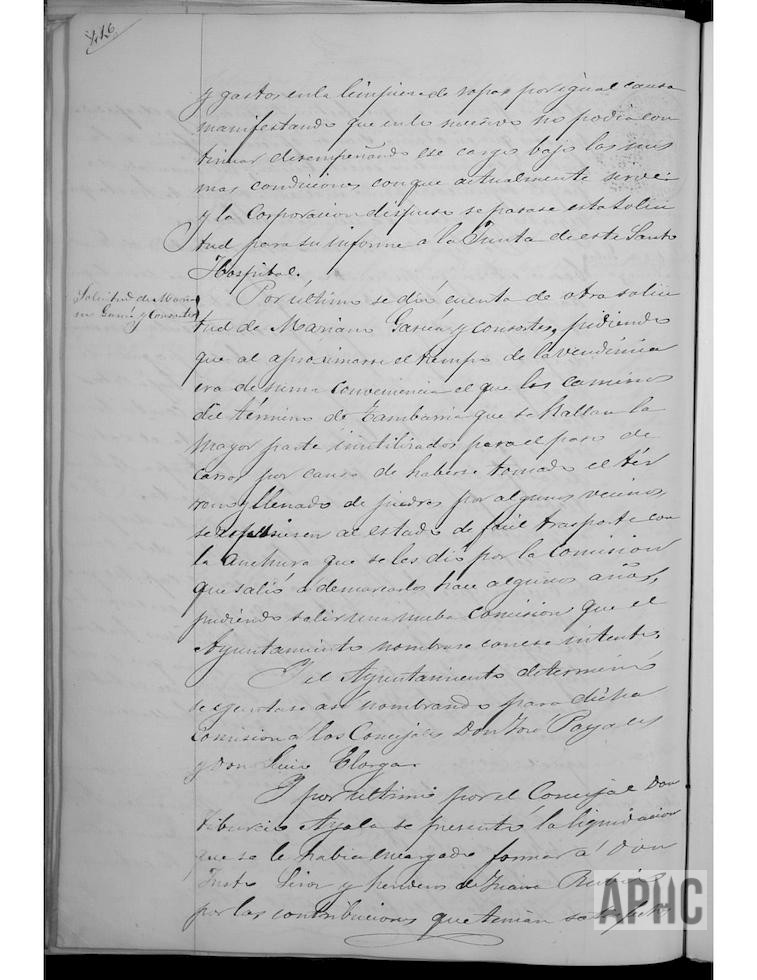 416
y gastos en la limpieza de ropas por igual causa
manifestando que en lo sucesivo no podia con
tinuar desempeñando ese cargo bajo las mis
mas condiciones con que actualmente sirve:
y la Corporacion dispuso se pasase esta solici
tud para su informe a la Junta de este Santo
Hospital.
Solicitud de Maria
no Garcia y Consortes
Por último se dió cuenta de otra solici
tud de Mariano Garcia y consortes, pidiendo
que al aproximarse el tiempo de la vendimia
era de suma conveniencia el que los caminos
del término de Zambarria que se hallan la
mayor parte inutilizados para el paso de
carros por causa de haberse tomado el tér
reno y llenado de piedras por algunos vecinos,
se repusiesen al estado de facil trasporte con
la anchura que se les dió por la Comision
que salió a demarcarlos hace algunos años,
pidiendo salir una nueba Comision que el
Ayuntamiento nombrase con ese intento.
Y el Ayuntamiento determinó
se ejecutase asi nombrando para dicha
Comision a los Concejales Don José Payales
y Don Luis Elorga.
Y por ultimo por el Concejal Don
Tiburcio Ayala se presentó la liquidacion
que se le habia encargado formar a Don
Justo y herederos de Juana
por las contribuciones que tenian satisfechas
APHC